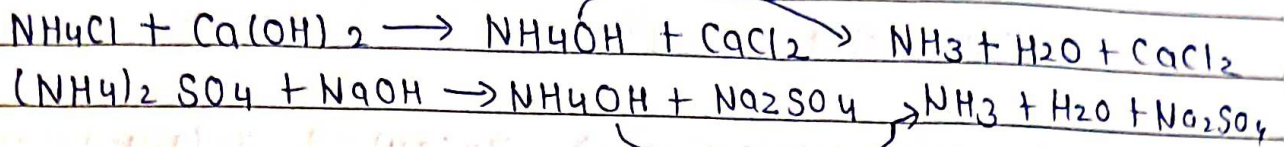 NH4Cl + Ca(OH)2 → NH4OH + CaCl2 → NH3 + H2O + CaCl2
(NH4)2 SO4 + NaOH → NH4OH + Na2SO4 → NH3 + H2O + Na2SO4